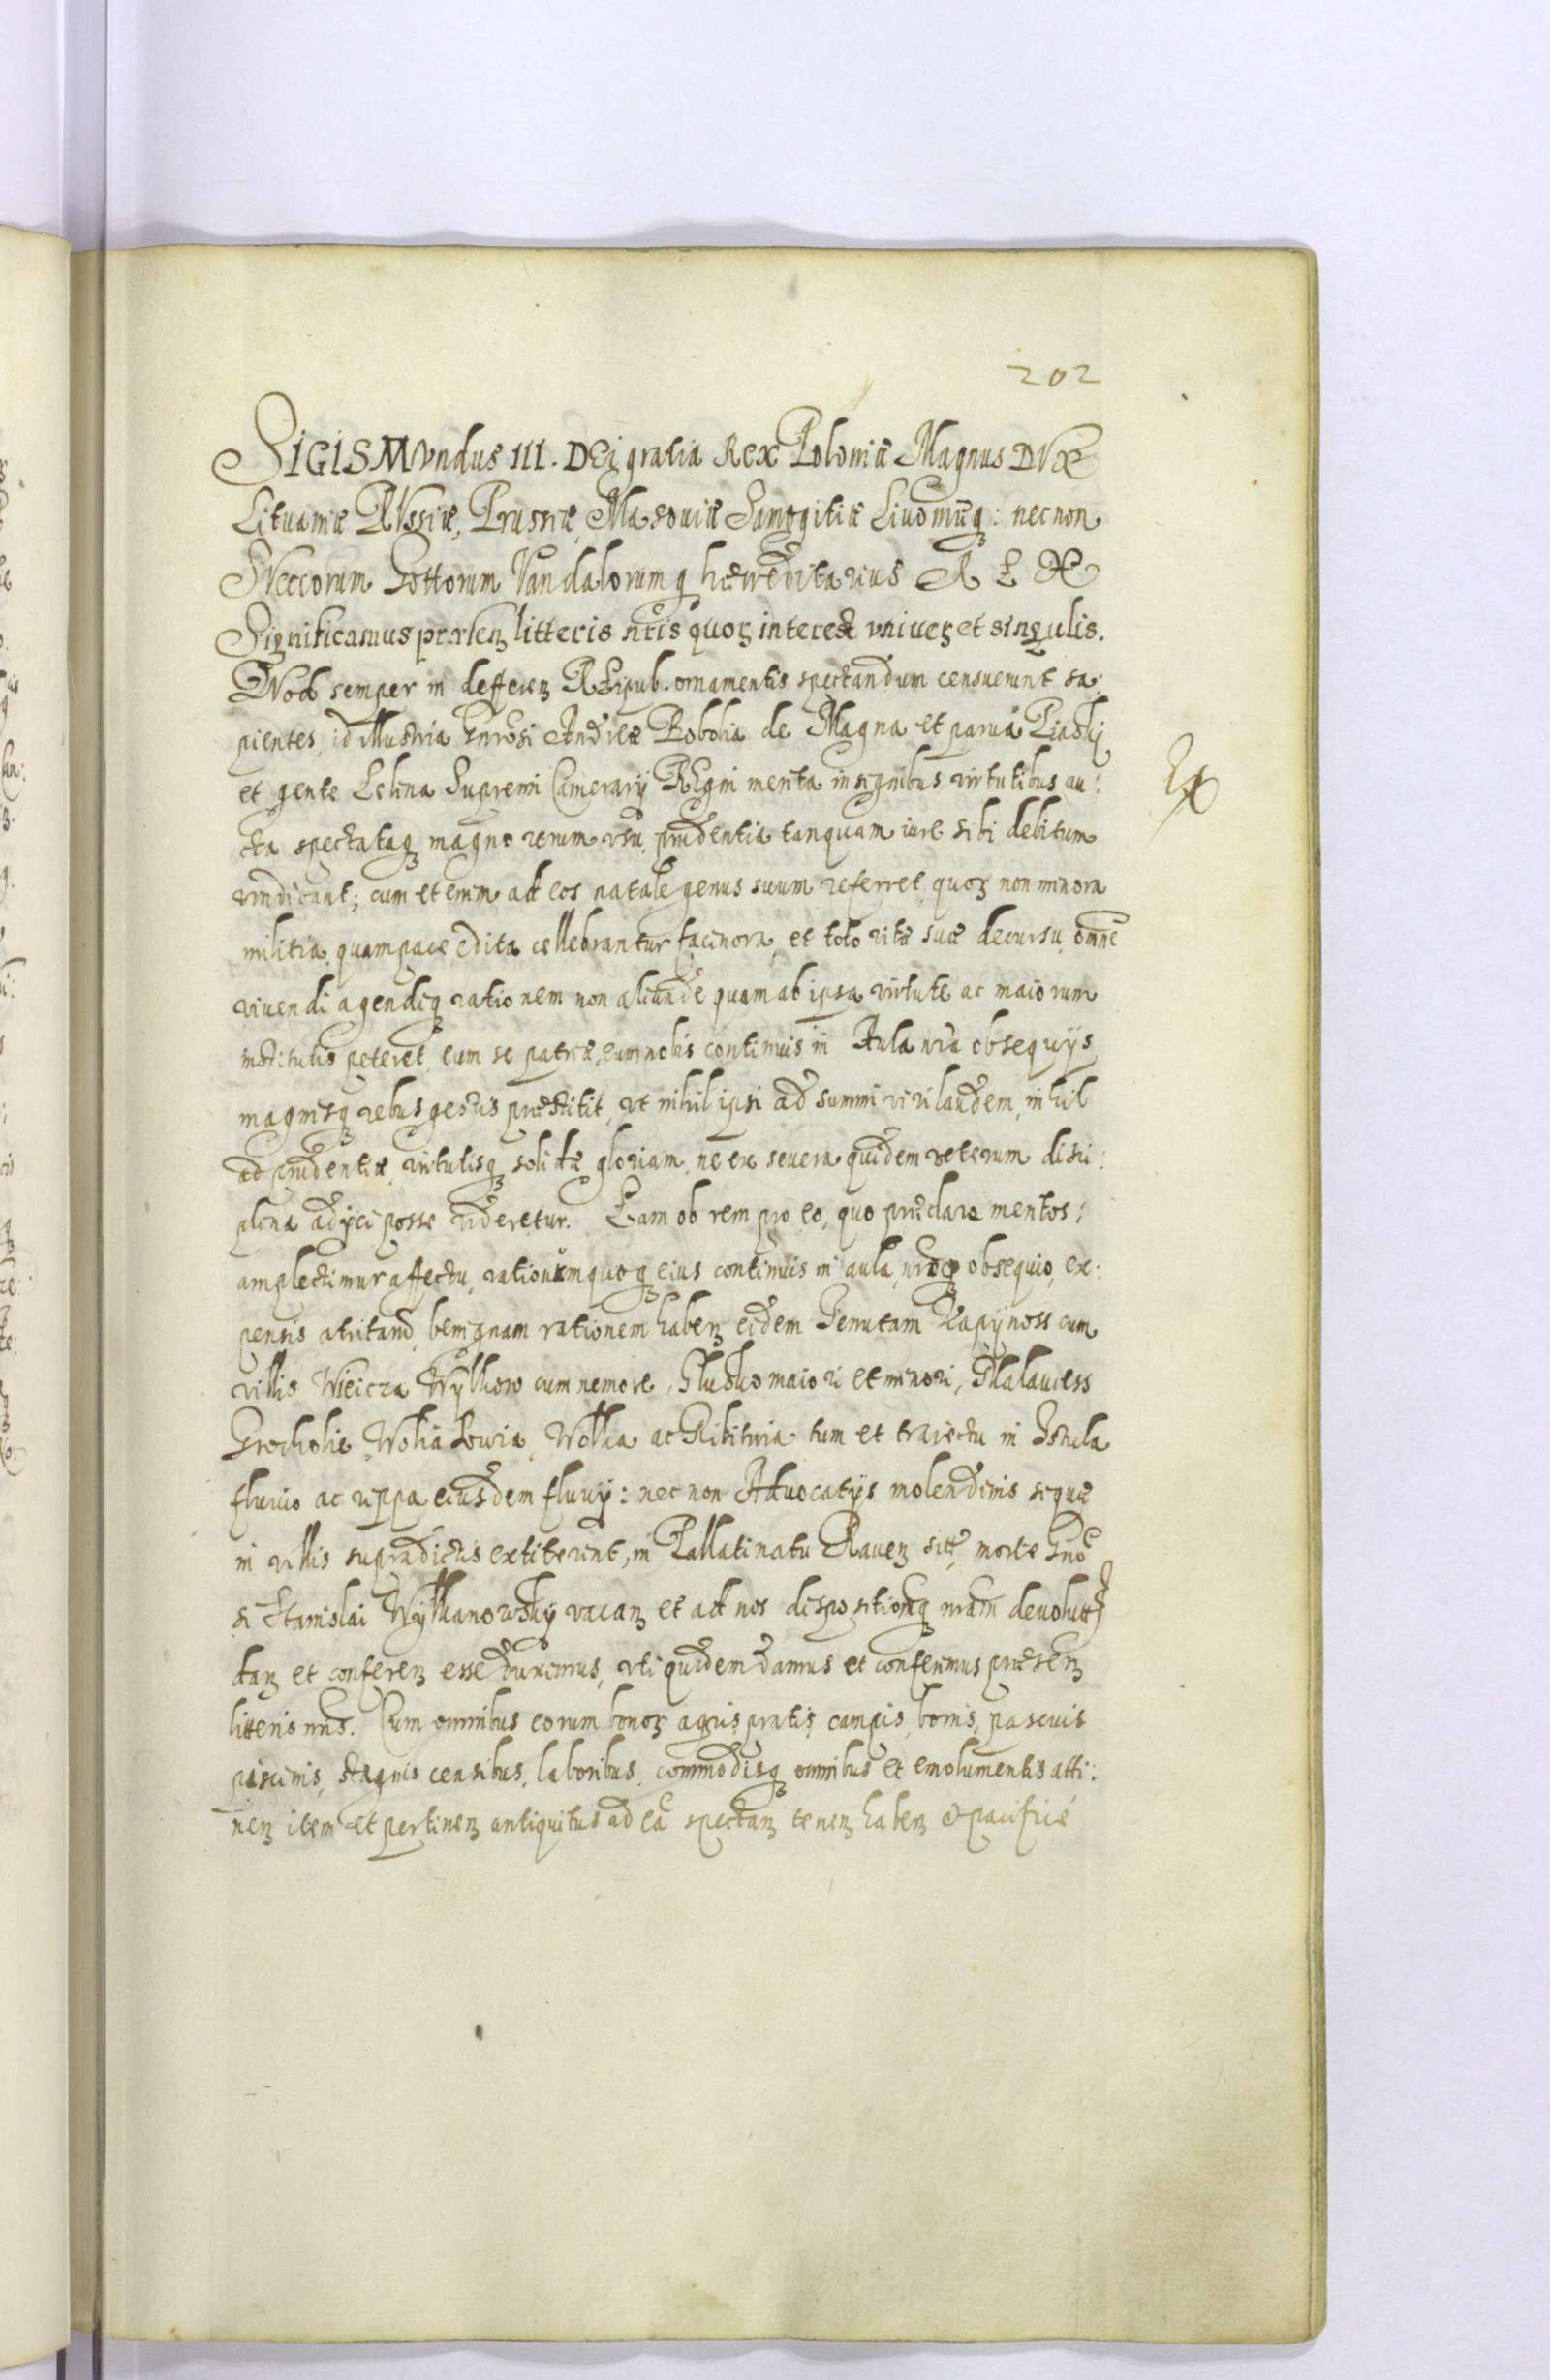 202
SIGISMVndus III. DEi gratia REx Poloniæ Magnus DVx
Lituaniæ RVssiæ, Prussiæ, Masoviæ Samogitiæ Livoniæq3: necnon
SVeccorum Gottorum Vandalorumq hæreditarius R E X
Significamus præsen3 litteris nris quor3 interest vniuer3 et singulis.
QVod semper in defferen3 REipub. ornamentis spectandum censuerunt sa:
pientes, id illustria Gnrosi Andreæ Bobolia de Magna et parua Piaski
et gente Lelina Supremi Camerarij REgni merita insignibus virtutibus au:
cta spectataq3 magno rerum vsu, prudentia tanquam iure sibi debitum
vindicant; cum et enim ad eos natale genus suum referret, quor3 non minora
militia, quam pace edita cellebrantur facinora, et toto vitæ suæ decursu, omne
vivendi agendiq3 rationem non aliunde quam ab ipsa virtute ac maiorum
institutis peteret, eum se patriæ, eum nobis continuis in Aula nra obsequijs
magnisq3 rebus gestis præstitit, vt nihil ipsi ad summi viri laudem, nihil
ad prudentiæ, virtutisq3 solidæ gloriam, ne ex severa quidem veterum disci:
plina adijci posse videretur. Eam ob rem pro eo, quo præclare meritos:
amplectimur affectu, rationemquoq3 eius continuis in aula, nroq3 obsequio, ex:
pensis atritand, benignam rationem haben3 eidem Tenutam Kapijnoss cum
villis Wieicza Wÿlkow cum nemore, Glusko maiori et minori,
Grocholie, Wolia Lowia, Wolka ac tum et traiectu in Istula
fluvio ac rippa eiusdem fluvij: nec non Advocatijs molendinis siquæ
in villis supradictis extiterint, in Pallatinatu Raven3 sitt, morte Gno
si Stanislai Wÿlkanowskÿ vacan3 et ad nos dispositionq3 nram devolutt
dan3 et conferen3 esse duximus, vti quidem damus et conferimus præsen3
litteris nris. Cum omnibus eorum bonor3 agris, pratis, campis, boris, pascuis
piscinis, stagnis censibus, laboribus, commodisq3 omnibus et emolumentis atti:
nen3 item et pertinen3 antiquitus ad ea spectan3 tenen3 haben3 & pacificé